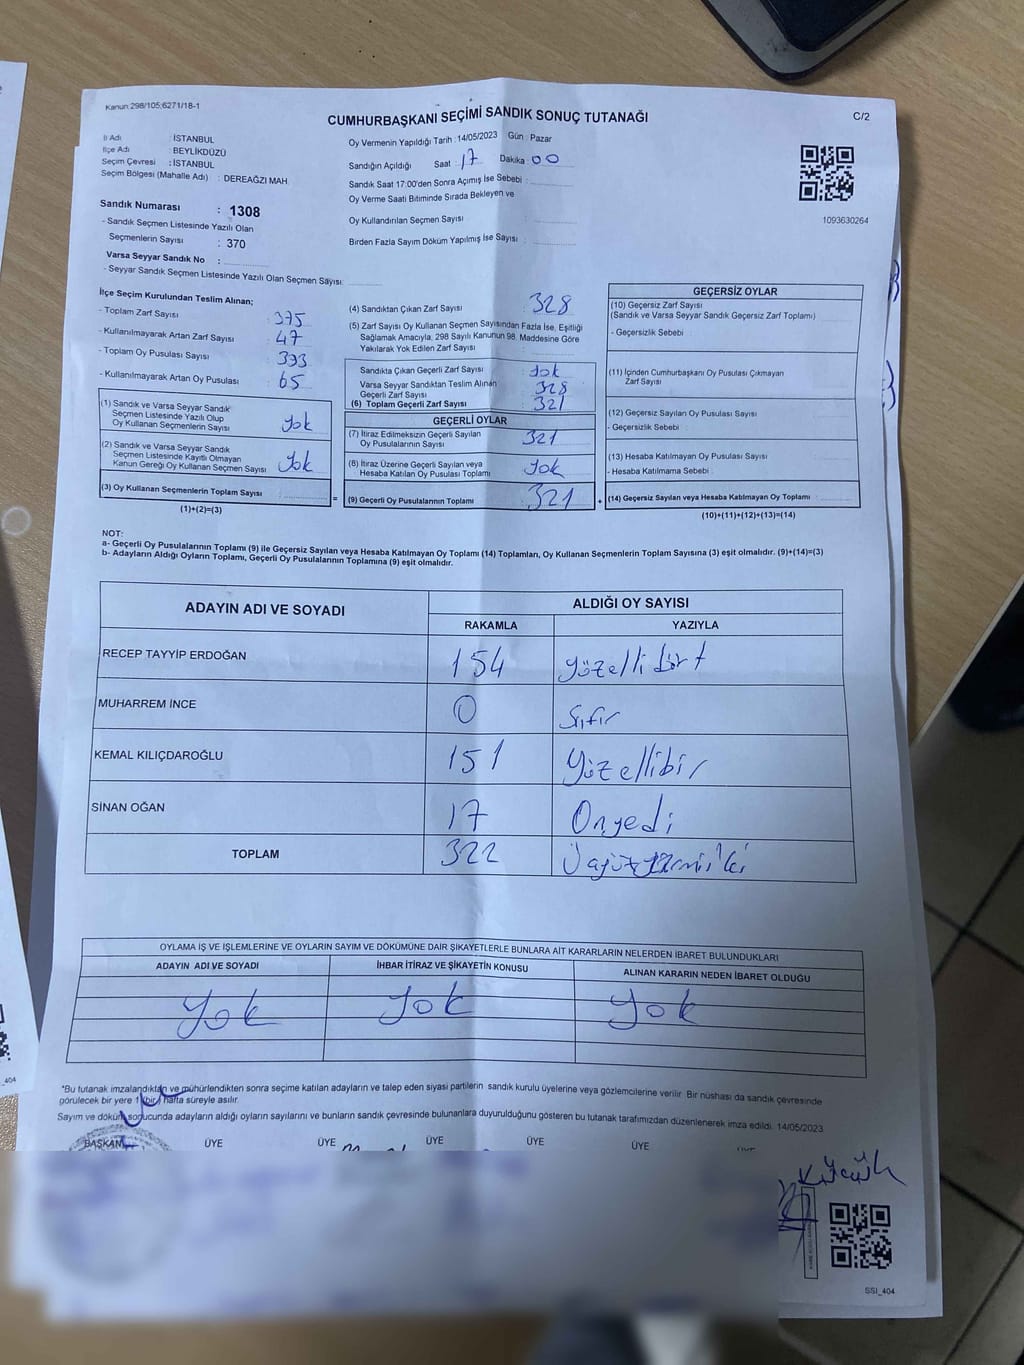 Kanun:298/105;6271/18-1
CUMHURBAŞKANI SEÇİMİ SANDIK SONUÇ TUTANAĞI
C/2
İl Adı : İSTANBUL
İlçe Adı : BEYLİKDÜZÜ
Seçim Çevresi : İSTANBUL
Seçim Bölgesi (Mahalle Adı) : DEREAĞZI MAH.
Oy Vermenin Yapıldığı Tarih :14/05/2023 Gün : Pazar
Sandığın Açıldığı Saat : 17 Dakika : 00
Sandık Saat 17:00'den Sonra Açımış İse Sebebi :
Oy Verme Saati Bitiminde Sırada Bekleyen ve
Oy Kullandırılan Seçmen Sayısı :
Birden Fazla Sayım Döküm Yapılmış İse Sayısı :
1093630264
Sandık Numarası : 1308
- Sandık Seçmen Listesinde Yazılı Olan
Seçmenlerin Sayısı : 370
Varsa Seyyar Sandık No :
- Seyyar Sandık Seçmen Listesinde Yazılı Olan Seçmen Sayısı:
İlçe Seçim Kurulundan Teslim Alınan;
- Toplam Zarf Sayısı : 375
- Kullanılmayarak Artan Zarf Sayısı : 47
- Toplam Oy Pusulası Sayısı : 393
- Kullanılmayarak Artan Oy Pusulası : 65
(1) Sandık ve Varsa Seyyar Sandık
Seçmen Listesinde Yazılı Olup
Oy Kullanan Seçmenlerin Sayısı : Yok
(2) Sandık ve Varsa Seyyar Sandık
Seçmen Listesinde Kayıtlı Olmayan
Kanun Gereği Oy Kullanan Seçmen Sayısı : Yok
(3) Oy Kullanan Seçmenlerin Toplam Sayısı :
(1)+(2)=(3)
=
(4) Sandıktan Çıkan Zarf Sayısı : 328
(5) Zarf Sayısı Oy Kullanan Seçmen Sayısından Fazla İse, Eşitliği
Sağlamak Amacıyla, 298 Sayılı Kanunun 98. Maddesine Göre
Yakılarak Yok Edilen Zarf Sayısı :
Sandıkta Çıkan Geçerli Zarf Sayısı : Yok
Varsa Seyyar Sandıktan Teslim Alınan
Geçerli Zarf Sayısı : 328
(6) Toplam Geçerli Zarf Sayısı : 321
GEÇERLİ OYLAR
(7) İtiraz Edilmeksizin Geçerli Sayılan
Oy Pusulalarının Sayısı : 321
(8) İtiraz Üzerine Geçerli Sayılan veya
Hesaba Katılan Oy Pusulası Toplamı : Yok
(9) Geçerli Oy Pusulalarının Toplamı : 321
+
GEÇERSİZ OYLAR
(10) Geçersiz Zarf Sayısı
(Sandık ve Varsa Seyyar Sandık Geçersiz Zarf Toplamı)
- Geçersizlik Sebebi :
(11) İçinden Cumhurbaşkanı Oy Pusulası Çıkmayan
Zarf Sayısı
(12) Geçersiz Sayılan Oy Pusulası Sayısı
- Geçersizlik Sebebi :
(13) Hesaba Katılmayan Oy Pusulası Sayısı
- Hesaba Katılmama Sebebi :
(14) Geçersiz Sayılan veya Hesaba Katılmayan Oy Toplamı :
(10)+(11)+(12)+(13)=(14)
NOT:
a- Geçerli Oy Pusulalarının Toplamı (9) ile Geçersiz Sayılan veya Hesaba Katılmayan Oy Toplamı (14) Toplamları, Oy Kullanan Seçmenlerin Toplam Sayısına (3) eşit olmalıdır. (9)+(14)=(3)
b- Adayların Aldığı Oyların Toplamı, Geçerli Oy Pusulalarının Toplamına (9) eşit olmalıdır.
ADAYIN ADI VE SOYADI ALDIĞI OY SAYISI
RAKAMLA YAZIYLA
RECEP TAYYİP ERDOĞAN 154 yüzellidört
MUHARREM İNCE 0 Sıfır
KEMAL KILIÇDAROĞLU 151 Yüzellibir
SİNAN OĞAN 17 Onyedi
TOPLAM 322 Üçyüzyirmiiki
OYLAMA İŞ VE İŞLEMLERİNE VE OYLARIN SAYIM VE DÖKÜMÜNE DAİR ŞİKAYETLERLE BUNLARA AİT KARARLARIN NELERDEN İBARET BULUNDUKLARI
ADAYIN ADI VE SOYADI İHBAR İTİRAZ VE ŞİKAYETİN KONUSU ALINAN KARARIN NEDEN İBARET OLDUĞU
Yok Yok Yok
*Bu tutanak imzalandıktan ve mühürlendikten sonra seçime katılan adayların ve talep eden siyasi partilerin sandık kurulu üyelerine veya gözlemcilerine verilir. Bir nüshası da sandık çevresinde
görülecek bir yere 1 (bir) hafta süreyle asılır.
Sayım ve döküm sonucunda adayların aldığı oyların sayılarını ve bunların sandık çevresinde bulunanlara duyurulduğunu gösteren bu tutanak tarafımızdan düzenlenerek imza edildi. 14/05/2023
BAŞKAN ÜYE ÜYE ÜYE ÜYE ÜYE
SSI_404